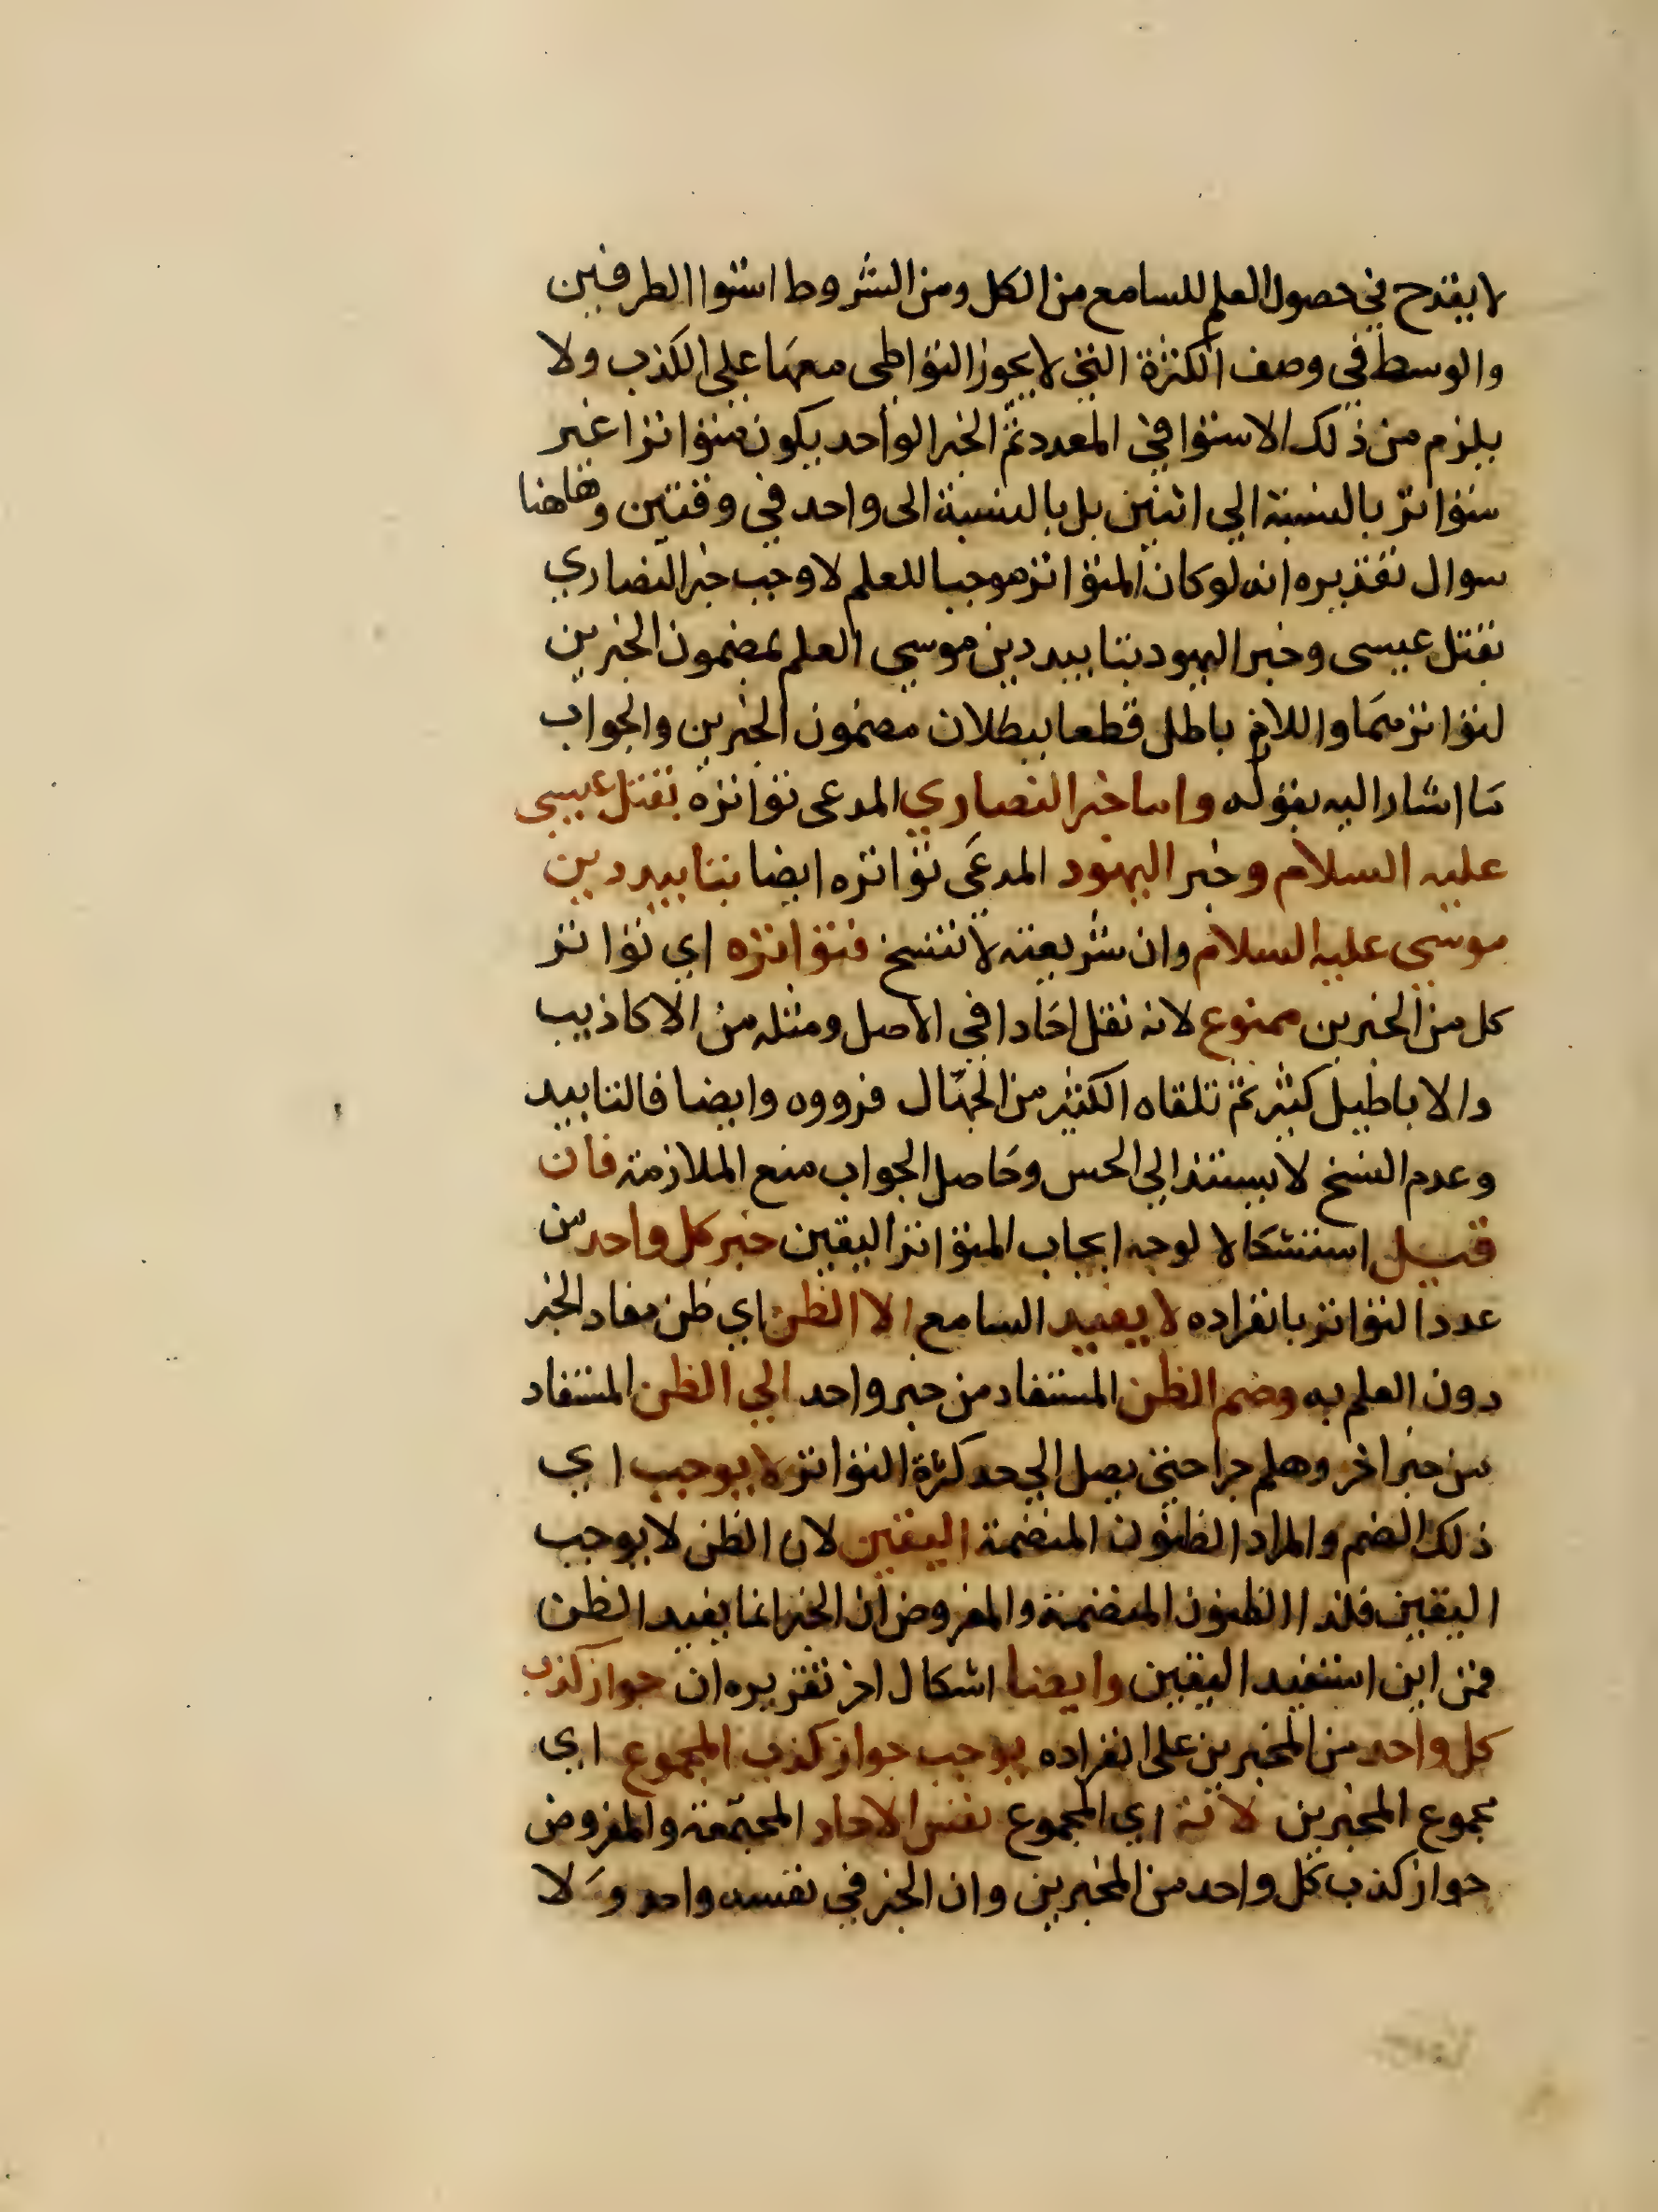 لا يقدح في حصول العلم للسامع من الكل ومن الشروط استوا الطرفين
والوسط في وصف الكثرة التي لا يجوز التواطى معها علي الكذب ولا
يلزم من ذلك الاستوا في العدد ثم الخبر الواحد يكون متواترا غير
متواتر بالنسبة الي اثنين بل بالنسبة الى واحد في وقتين وهاهنا
سوال تقديره انه لو كان المتواتر موجبا للعلم لاوجب خبر النصاري
بقتل عيسى وخبر اليهود بتابيد دين موسي العلم بمضمون الخبرين
لتواترهما واللازم باطل قطعا ببطلان مضمون الخبرين والجواب
ما اشار اليه بقوله واما خبر النصاري المدعى تواتره بقتل عيسى
عليه السلام وخبر اليهود المدعى تواتره ايضا بتابيد دين
موسي عليه السلام وان شريعته لا تنسخ فتواتره اي تواتر
كل من الخبرين ممنوع لانه نقل احادا في الاصل ومثله من الاكاذيب
والاباطيل كثير ثم تلقاه الكثير من الجهال فرووه وايضا فالتابيد
وعدم النسخ لا يستند الي الحس وحاصل الجواب منع الملازمة فان
قيل استشكالا لوجه ايجاب المتواتر اليقين خبر كل واحد من
عدد التواتر بانفراده لا يفيد السامع الا الظن اي ظن مفاد الخبر
دون العلم به وضم الظن المستفاد من خبر واحد الي الظن المستفاد
من خبر اخر وهلم جرا حتى يصل الي حد كثرة التواتر لا يوجب اي
ذلك الضم والمراد الظنون المنضمة اليقين لان الظن لا يوجب
اليقين فلذا الظنون المنضمة والمفروض ان الخبر انما يفيد الظن
فمن اين استفيد اليقين وايضا اشكال اخر تقريره ان جواز كذب
كل واحد من المخبرين على انفراده يوجب جواز كذب المجموع اي
مجموع المخبرين لانه اي المجموع نفس الاحاد المجتمعة والمفروض
جواز كذب كل واحد من المخبرين وان الخبر في نفسه واحد ولا